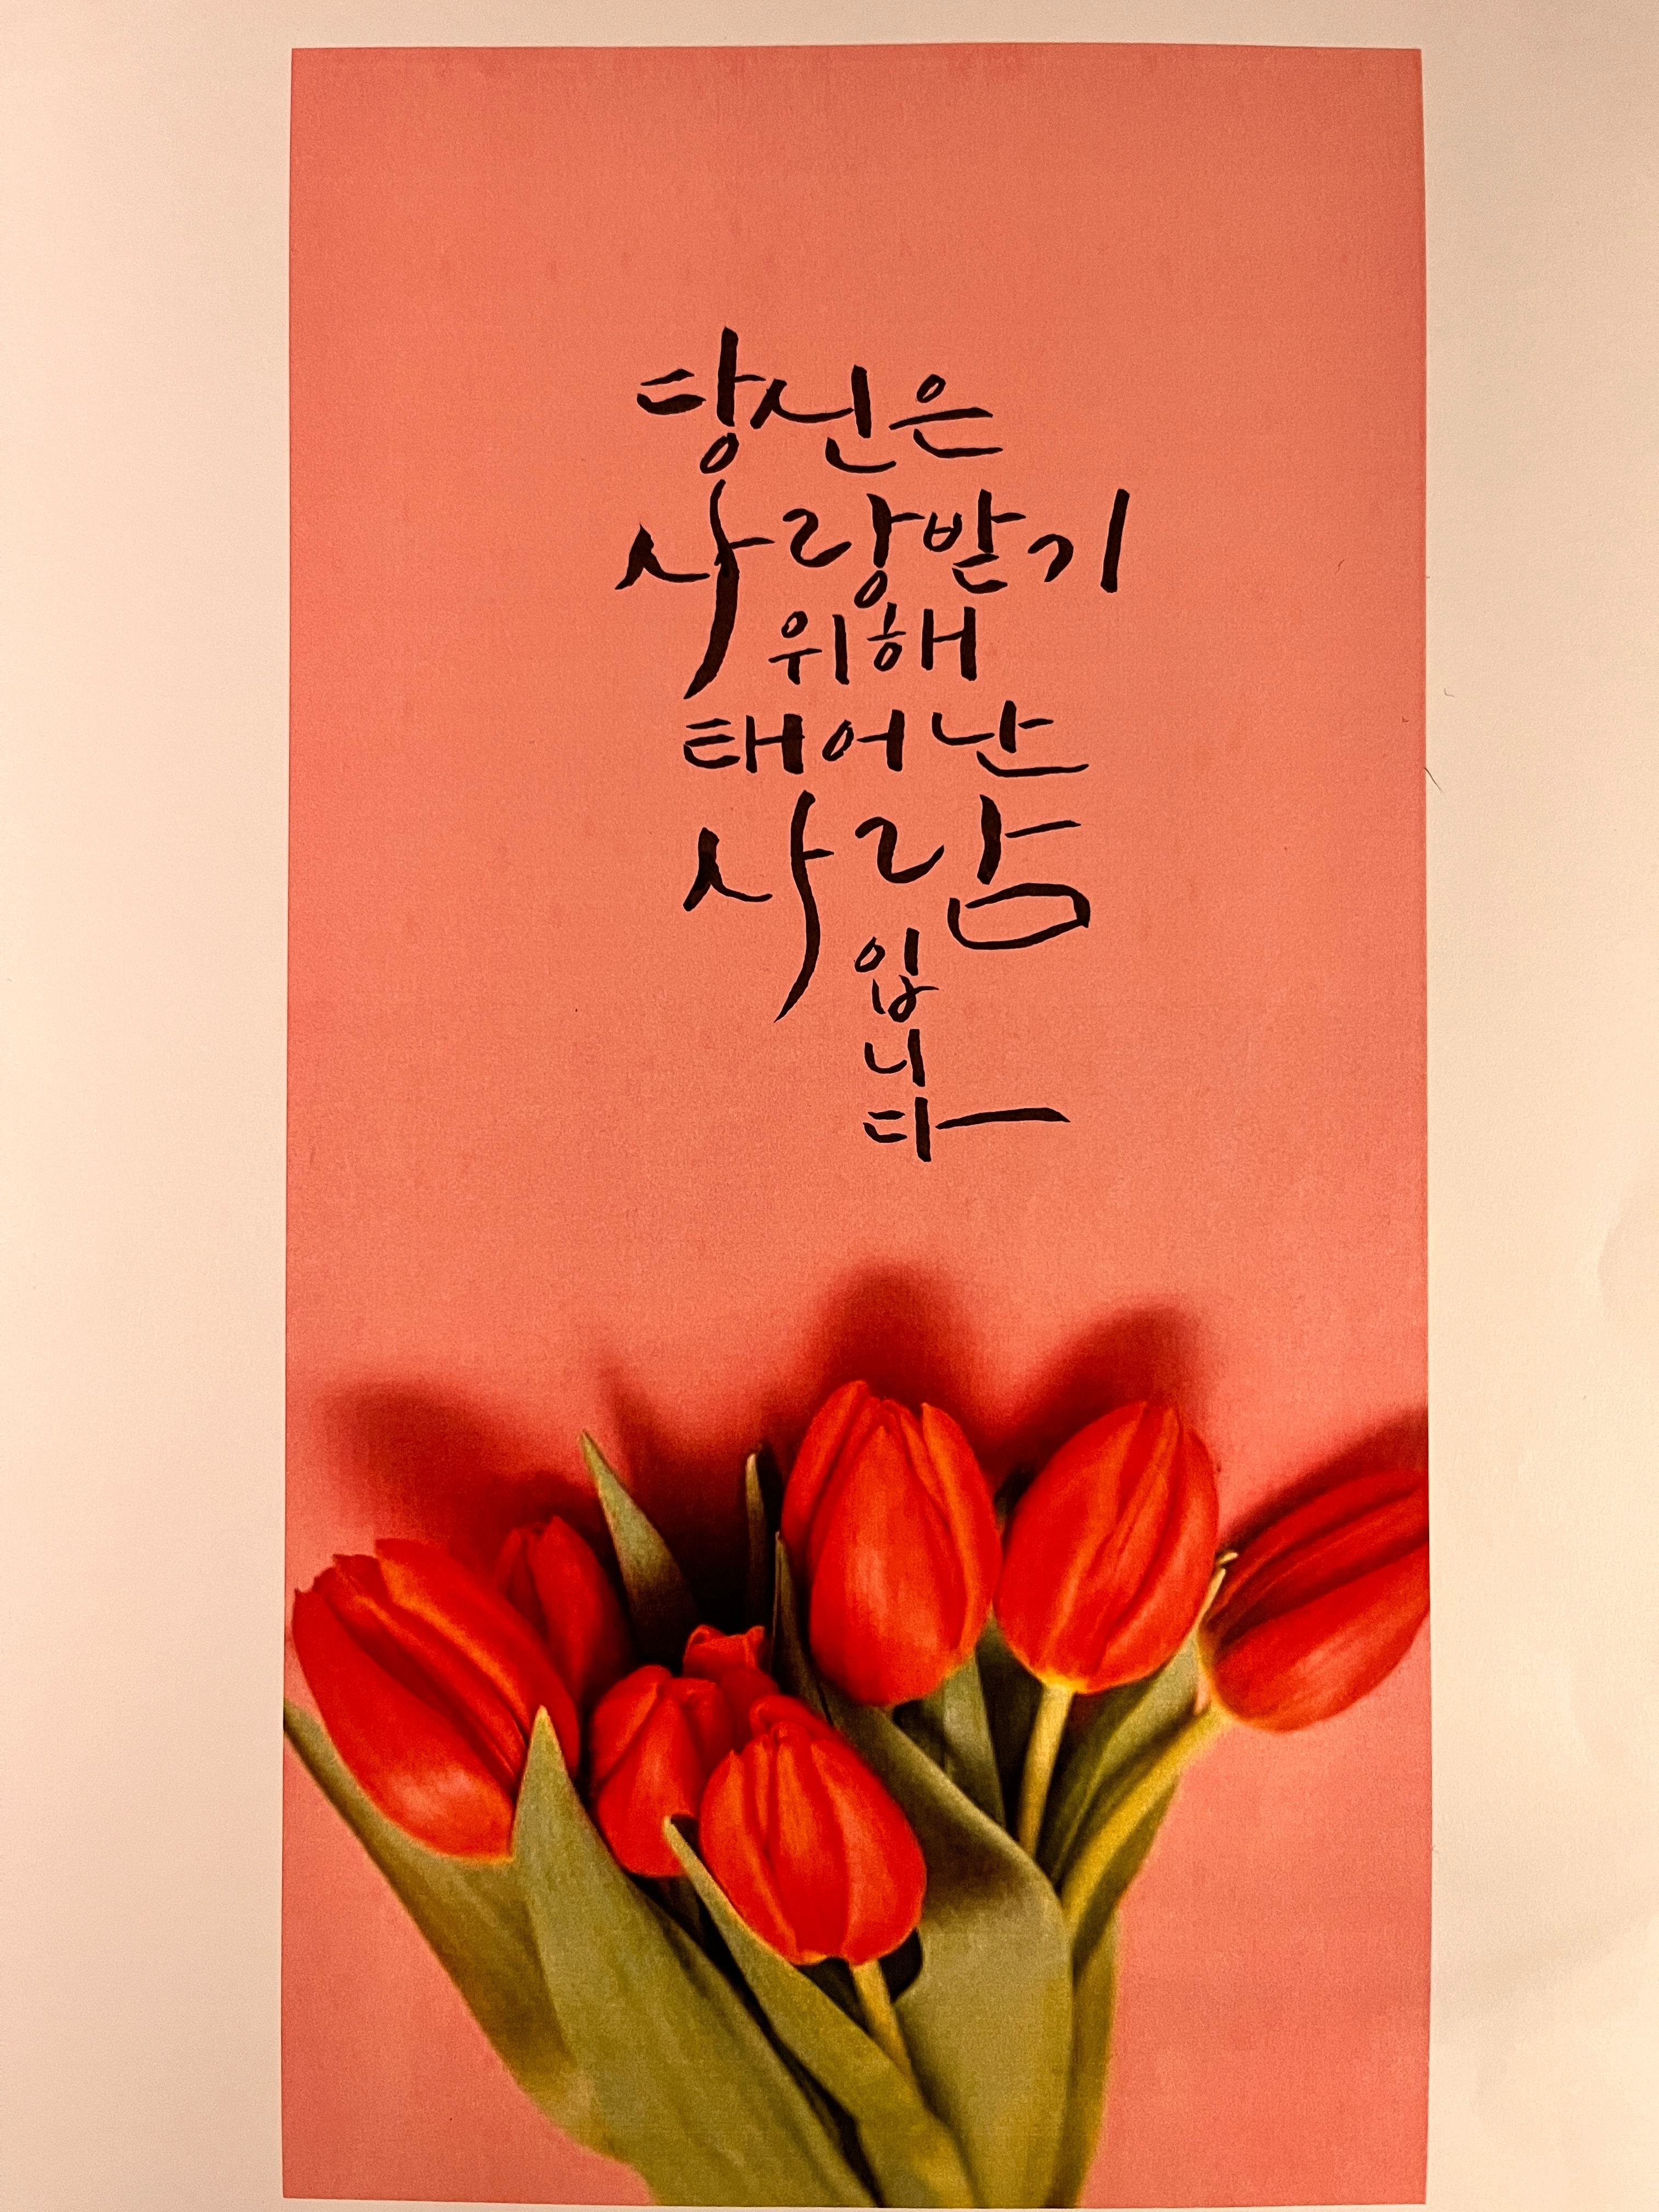 당신은
사랑받기
위해
태어난
사람
입
니
다